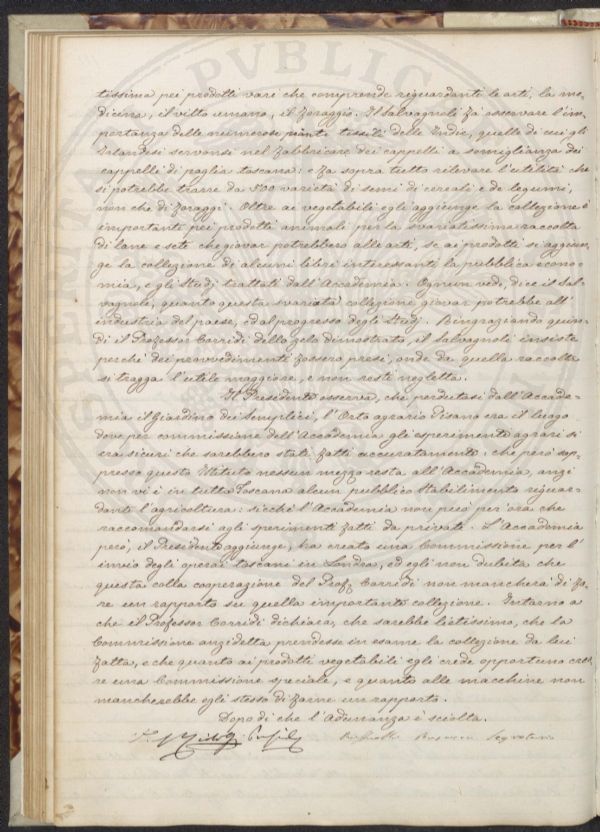 tissima pei prodotti vari che comprende riguardanti le arti, la me-
dicina, il vitto umano, il foraggio. Il Salvagnoli fa osservare l'im-
portanza delle numerose piante tessili delle Indie, quelle di cui gli
Islandesi servonsi nel fabbricare dei cappelli a somiglianza dei
cappelli di paglia toscana: e fa sopra tutto rilevare l'utilità che
si potrebbe trarre da 500 varietà di semi di cereali e de legumi,
non che di foraggi. Oltre ai vegetabili egli aggiunge la collezione è
importante pei prodotti animali per la svariatissima raccolta
di lane e sete che giovar potrebbero alle arti, se ai prodotti si aggiun-
ge la collezione di alcuni libri interessanti la pubblica econo-
mia, e gli studj trattati dall'Accademia. Ognun vede, dice il Sal-
vagnoli, quanto questa svariata collezione giovar potrebbe all'
industria del paese, ed al progresso degli Studj. Ringraziando quin-
di il Professor Corridi dello zelo dimostrato, il Salvagnoli insiste
perchè dei provvedimenti fossero presi, onde da quella raccolta
si tragga l'utile maggiore, e non resti negletta.
Il Presidente osserva, che perdutasi dall'Accade-
mia il Giardino dei Semplici, l'Orto agrario Pisano era il luogo
dove per commissione dell'Accademia gli esperimenti agrari si
era sicuri che sarebbero stati fatti accuratamente: che però sop-
presso questo Istituto nessun mezzo resta all'Accademia, anzi
non vi è in tutta Toscana alcun pubblico stabilimento riguar-
dante l'agricoltura: sicchè l'Accademia non può per ora che
raccomandarsi agli sperimenti fatti da privati. L'Accademia
però, il Presidente aggiunge, ha creato una Commissione per l'
invio degli operai toscani in Londra, ed egli non dubita che
questa colla cooperazione del Prof. Corridi non mancherà di fa-
re un rapporto su quella importante collezione. Intorno a
che il Professor Corridi dichiara, che sarebbe lietissimo, che la
Commissione anzidetta prendesse in esame la collezione da lui
fatta, e che quanto ai prodotti vegetabili egli crede opportuno crea-
re una Commissione speciale, e quanto alle macchine non
mancherebbe egli stesso di farne un rapporto.
Dopo di che l'Adunanza è sciolta.
Segretario